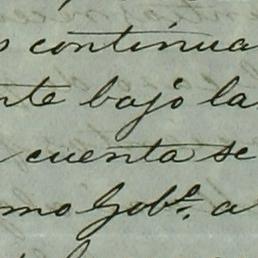 s continua
nte bajo la
cuenta se
mo Gobº. a